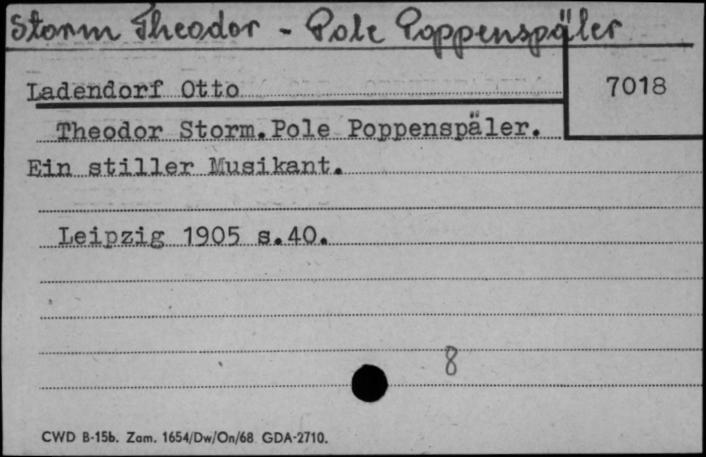 Storm Theodor - Pole Poppenspäler
Ladendorf Otto
7018
Theodor Storm. Pole Poppenspäler.
Ein stiller Musikant.
Leipzig 1905 s.40.
8
CWD B-15b. Zam. 1654/Dw/On/68 GDA-2710.